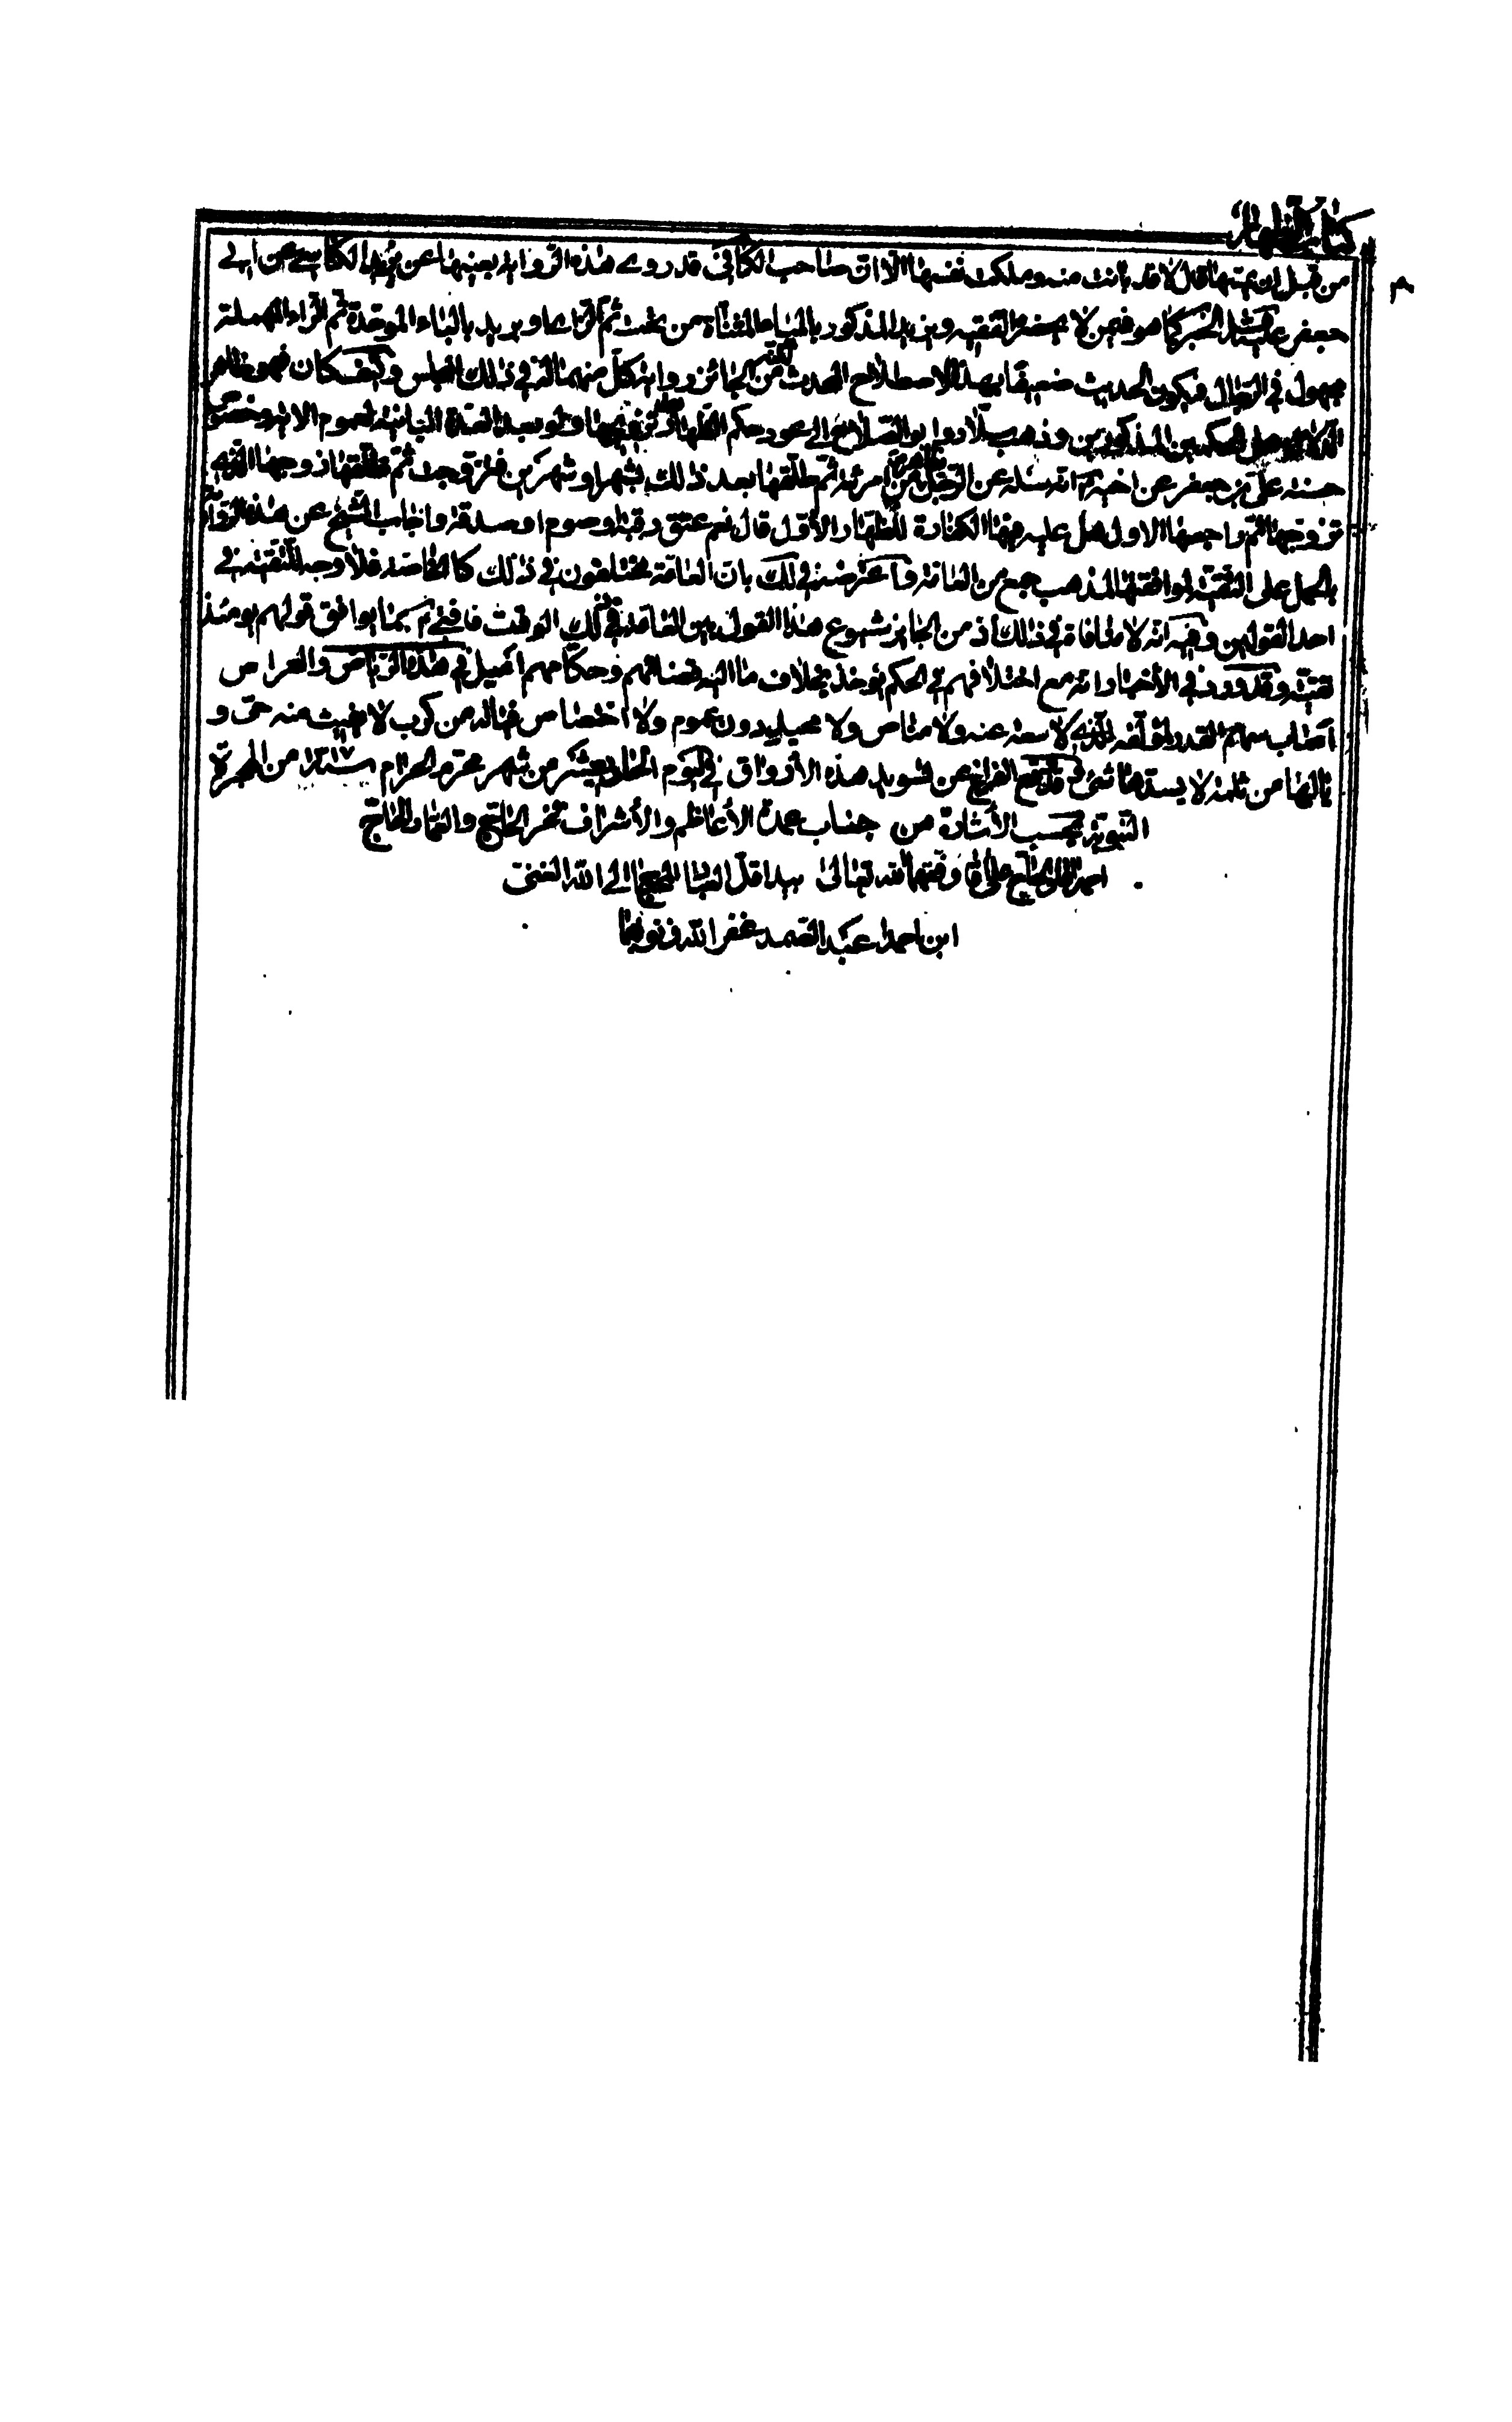 كتاب الظهار
من قبل ان يمسها قال لا قد بانت منه وملكت نفسها الا ان صاحب الكافى قد روى هذه الرواية بعينها عن يزيد الكناسى عن ابى
جعفر الخبر كما هو فيمن لا يحضره الفقيه ويزيد المذكور بالياء المثناة من تحت ثم الزاء او بريد بالباء الموحدة ثم الراء المهملة
مجهول في الرجال فيكون الحديث ضعيفا بهذا الاصطلاح المحدث لكن من الجائز رواية كل منهما له في ذلك المجلس وكيف كان فهو ظاهر
الحكمين المذكورين وذهب سلار وابو الصلاح الى عود حكم الظهار لو تزوجها ولو بعد العدة البائنة لعموم الاية وخصوص
حسنة على بن جعفر عن اخيه انه سئله عن الرجل ظاهر من امرئته ثم طلقها بعد ذلك بشهر او شهرين فتزوجت ثم طلقها زوجها الذى
تزوجها ثم راجعها الاول هل عليه فيها الكفارة للظهار الأول قال نعم عتق رقبة او صوم او صدقة واجاب الشيخ عن هذه الرواية
بالحمل على التقية لموافقتها لمذهب جمع من العامة واعترضه في ذلك بان العامة مختلفون في ذلك كالخاصة فلا وجه للتقية في
احد القولين وفيه انه لا منافاة في ذلك اذ من الجايز شيوع هذا القول بين العامة في ذلك الوقت فافتىٰهم بما يوافق قولهم يومئذ
تقية وقد ورد في الأخبار انه مع اختلافهم في الحكم يؤخذ بخلاف ما اليه قضاتهم وحكامهم اميل في هذه الرياض والعراص
اصاب سهام القدر لمؤلفه الذى لا سعة عنه ولا مناص ولا محيل دون عموم ولا اختصاص فناله من كرب لا مغيث منه حتى و
نالها من ثلمة لا يسدها شئ قد وقع الفراغ من تسويد هذه الأوراق في اليوم الحادى عشر من شهر محرم الحرام سنة ١٣١٧ من الهجرة
النبوية بحسب الأشارة من جناب عمدة الأعاظم والأشراف فخر الحاج والعمار الحاج
وفقهما الله تعالى بيد اقل العباد المحتاج الى الله الغنى
ابن احمد عبد الصمد غفر الله ذنوبهما